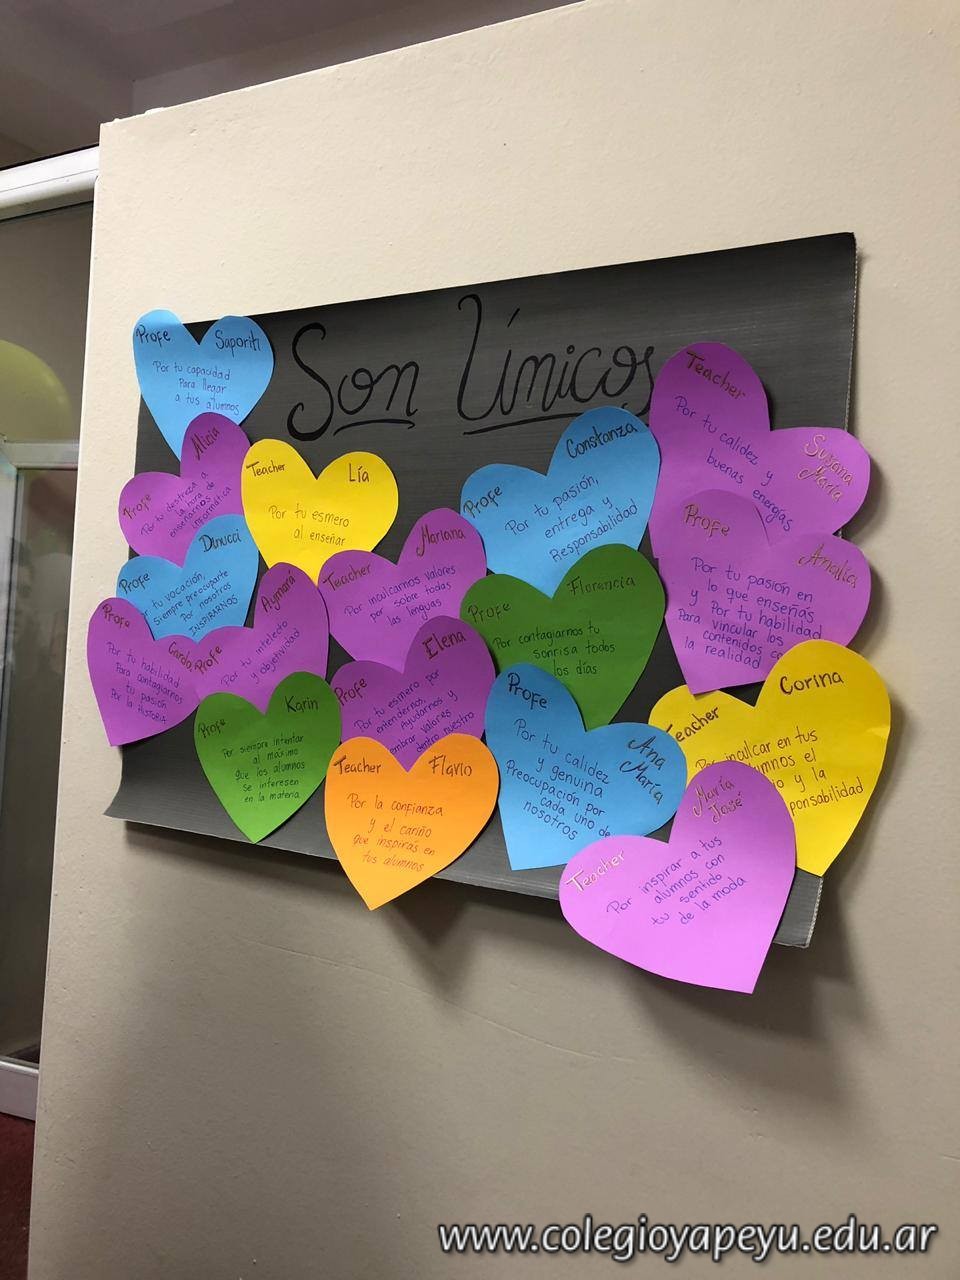 Son Únicos
Profe Saporiti
Por tu capacidad
Para llegar
a tus alumnos
Profe Alicia
Por tu destreza a
la hora de
enseñarnos
informática
Teacher Lía
Por tu esmero
al enseñar
Profe Constanza
Por tu pasión,
entrega y
Responsabilidad
Teacher Susana María
Por tu calidez y
buenas energías
Profe Dinucci
tu vocación,
siempre preocuparte
Por nosotros
INSPIRARNOS
Teacher Mariana
Por inculcarnos valores
por sobre todas
las lenguas
Profe Florencia
Por contagiarnos tu
sonrisa todos
los días
Profe Analía
Por tu pasión en
lo que enseñas
y Por tu habilidad
Para vincular los
contenidos
la realidad
Profe
Por tu habilidad
Para contagiarnos
tu pasión
Por la HISTORIA
Profe Aymará
Por tu intelecto
y objetividad
Profe Elena
Por tu esmero por
entendernos,
Ayudarnos y
valores
dentro nuestro
Profe Karin
Por siempre intentar
al máximo
que los alumnos
se interesen
en la materia
Teacher Flavio
Por la confianza
y el cariño
que inspirás en
tus alumnos
Profe Ana María
Por tu calidez
y genuina
Preocupación por
cada uno de
nosotros
Teacher Corina
Por inculcar en tus
el
y la
Teacher María José
Por inspirar a tus
alumnos con
tu sentido
de la moda
www.colegioyapeyu.edu.ar